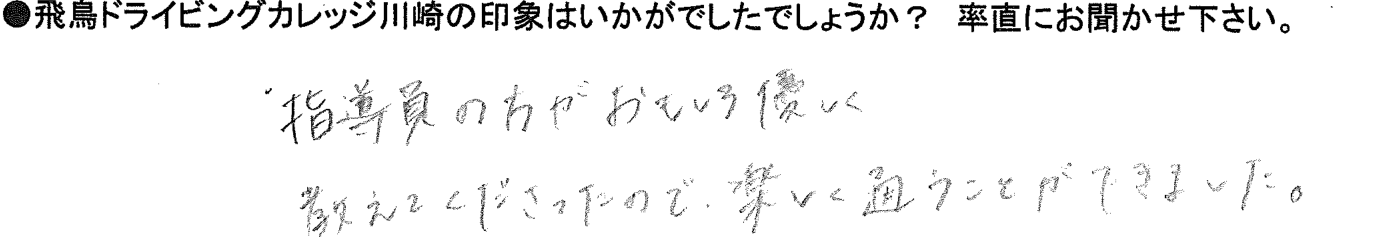 ●飛鳥ドライビングカレッジ川崎の印象はいかがでしたでしょうか? 率直にお聞かせ下さい。
指導員の方がおもしろ優しく
教えてくださったので、楽しく通うことができました。